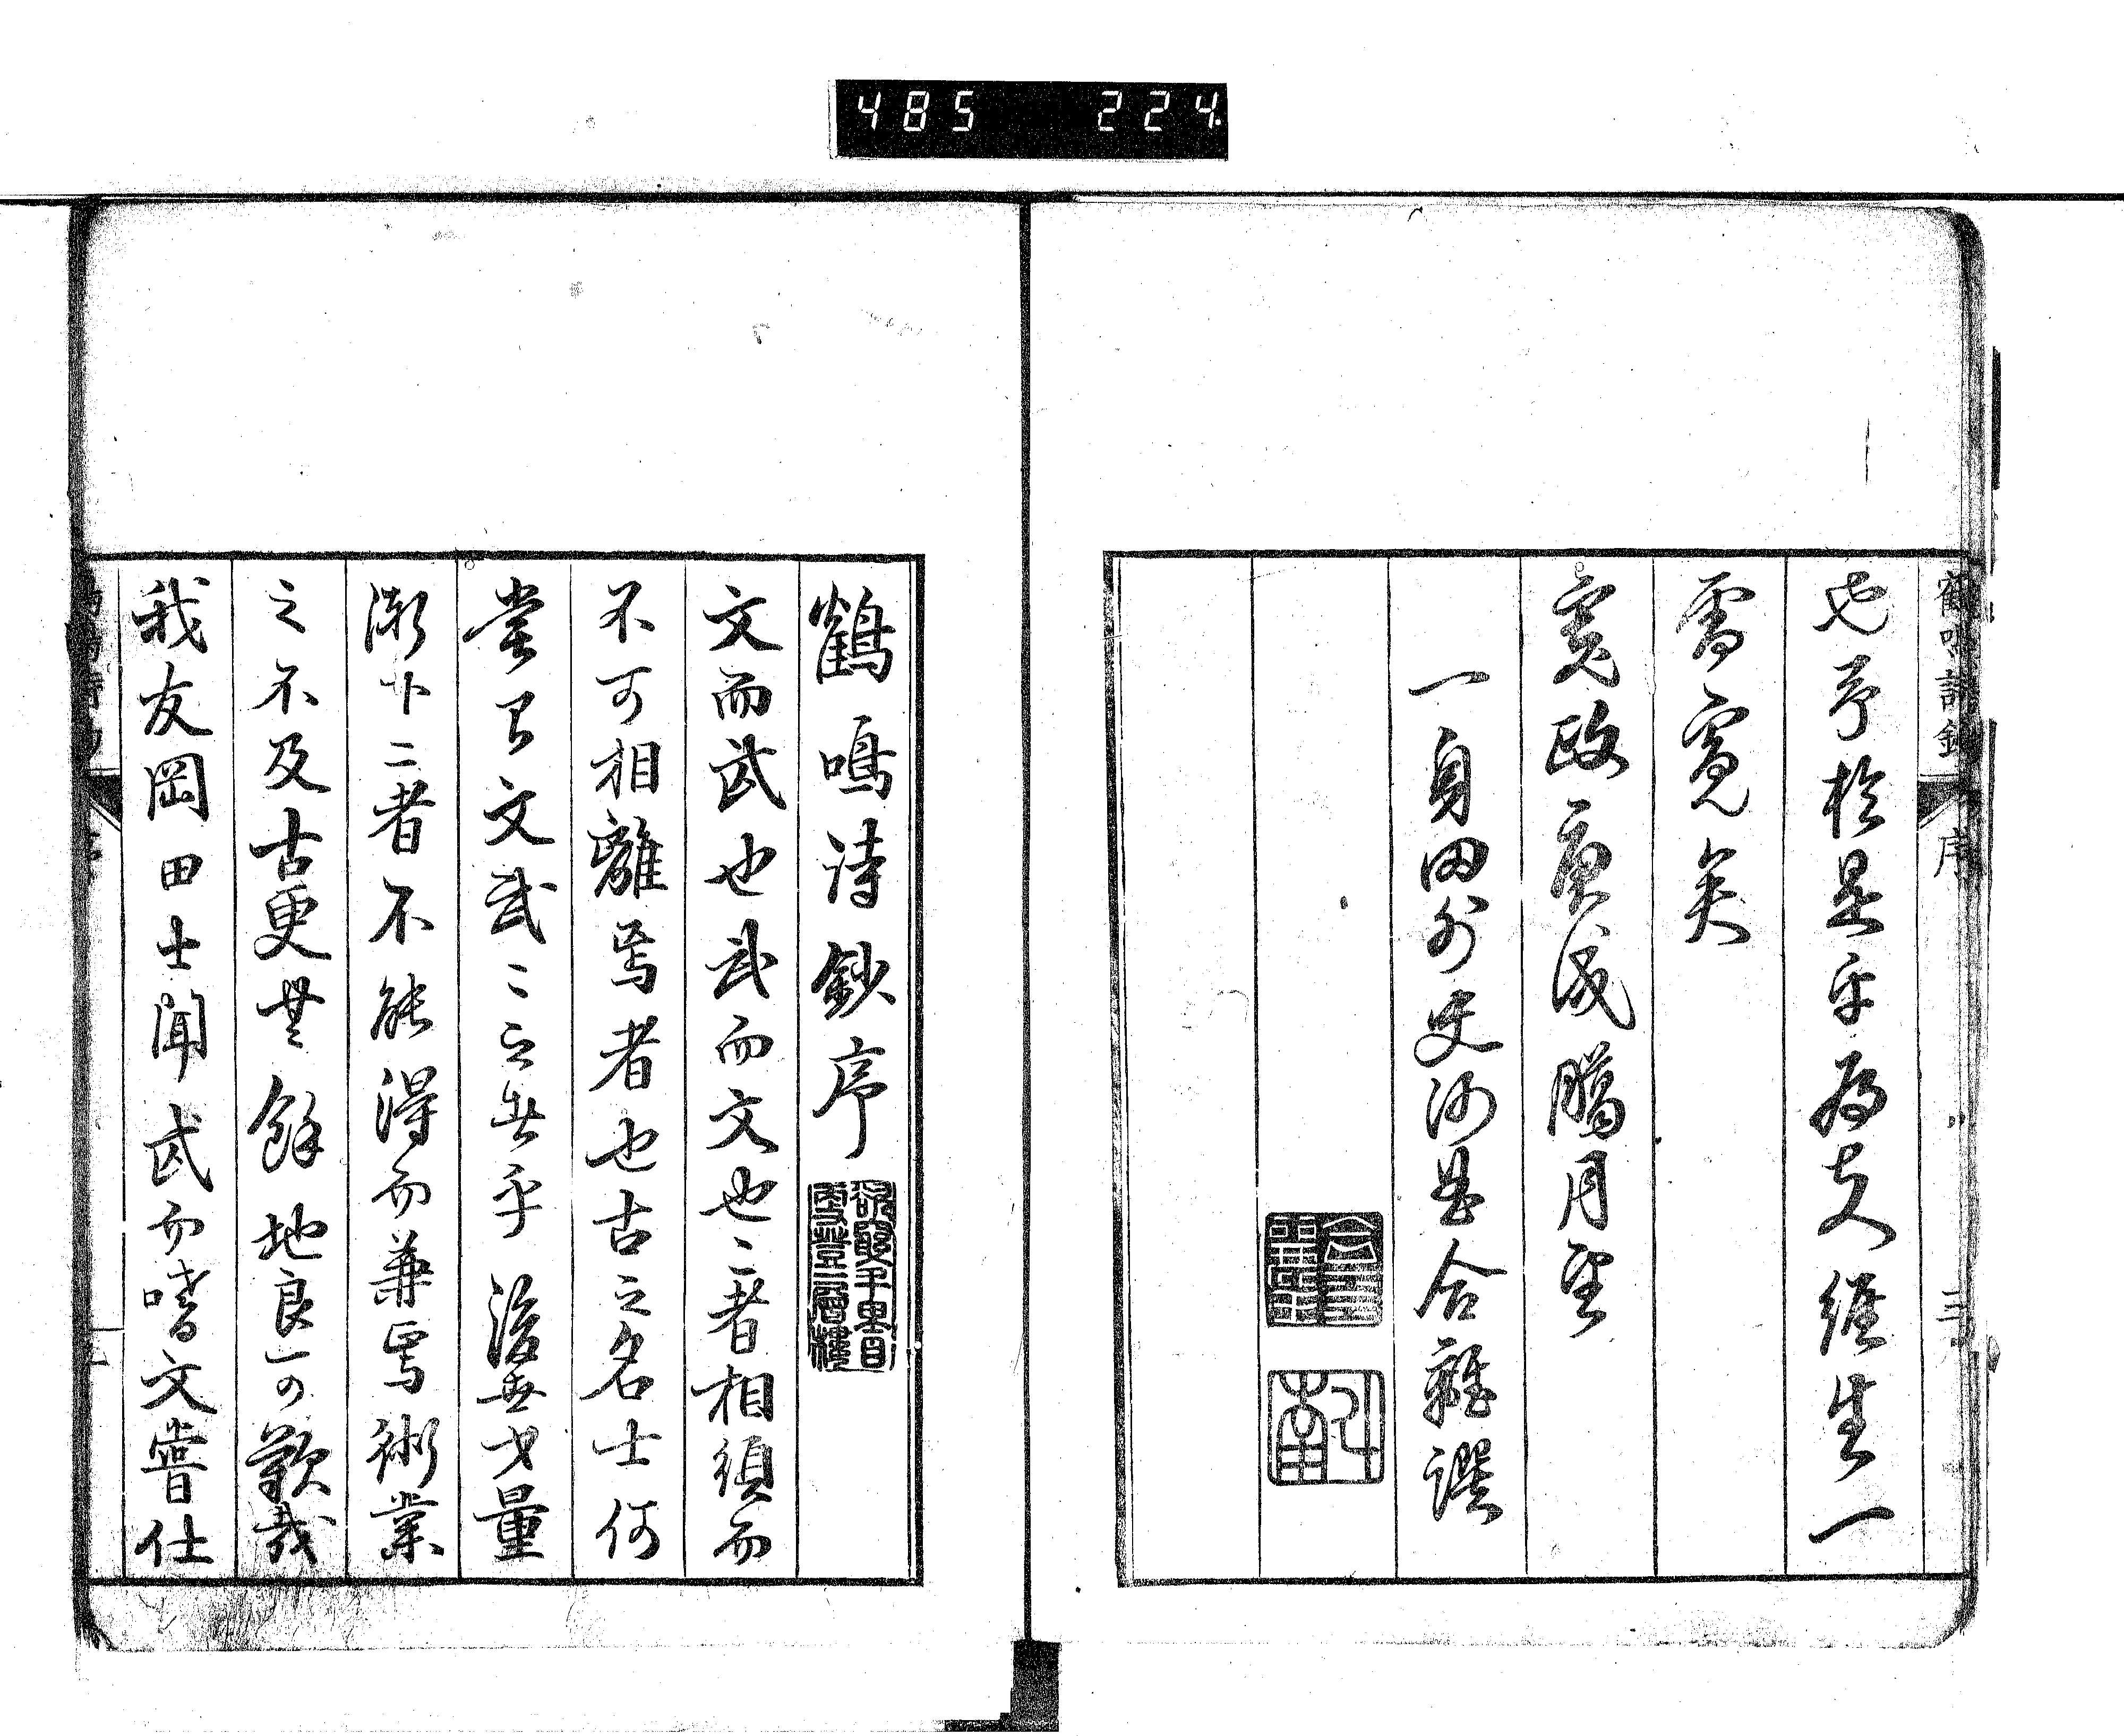 485 224
鶴鳴詩鈔 序 三
也序於是乎為夫人經生一
雪寃矣
寛政庚戌臘月望
一身田外史河昷合離譔
鶴鳴詩鈔序
文而武也武而文也二者相須而
不可相離焉者也古之名士何
嘗不文武〻之無乎後世才量
漸下二者不能得而兼焉術業
之不及古更無餘地良可歎哉
我友岡田士聞武而嗜文嘗仕